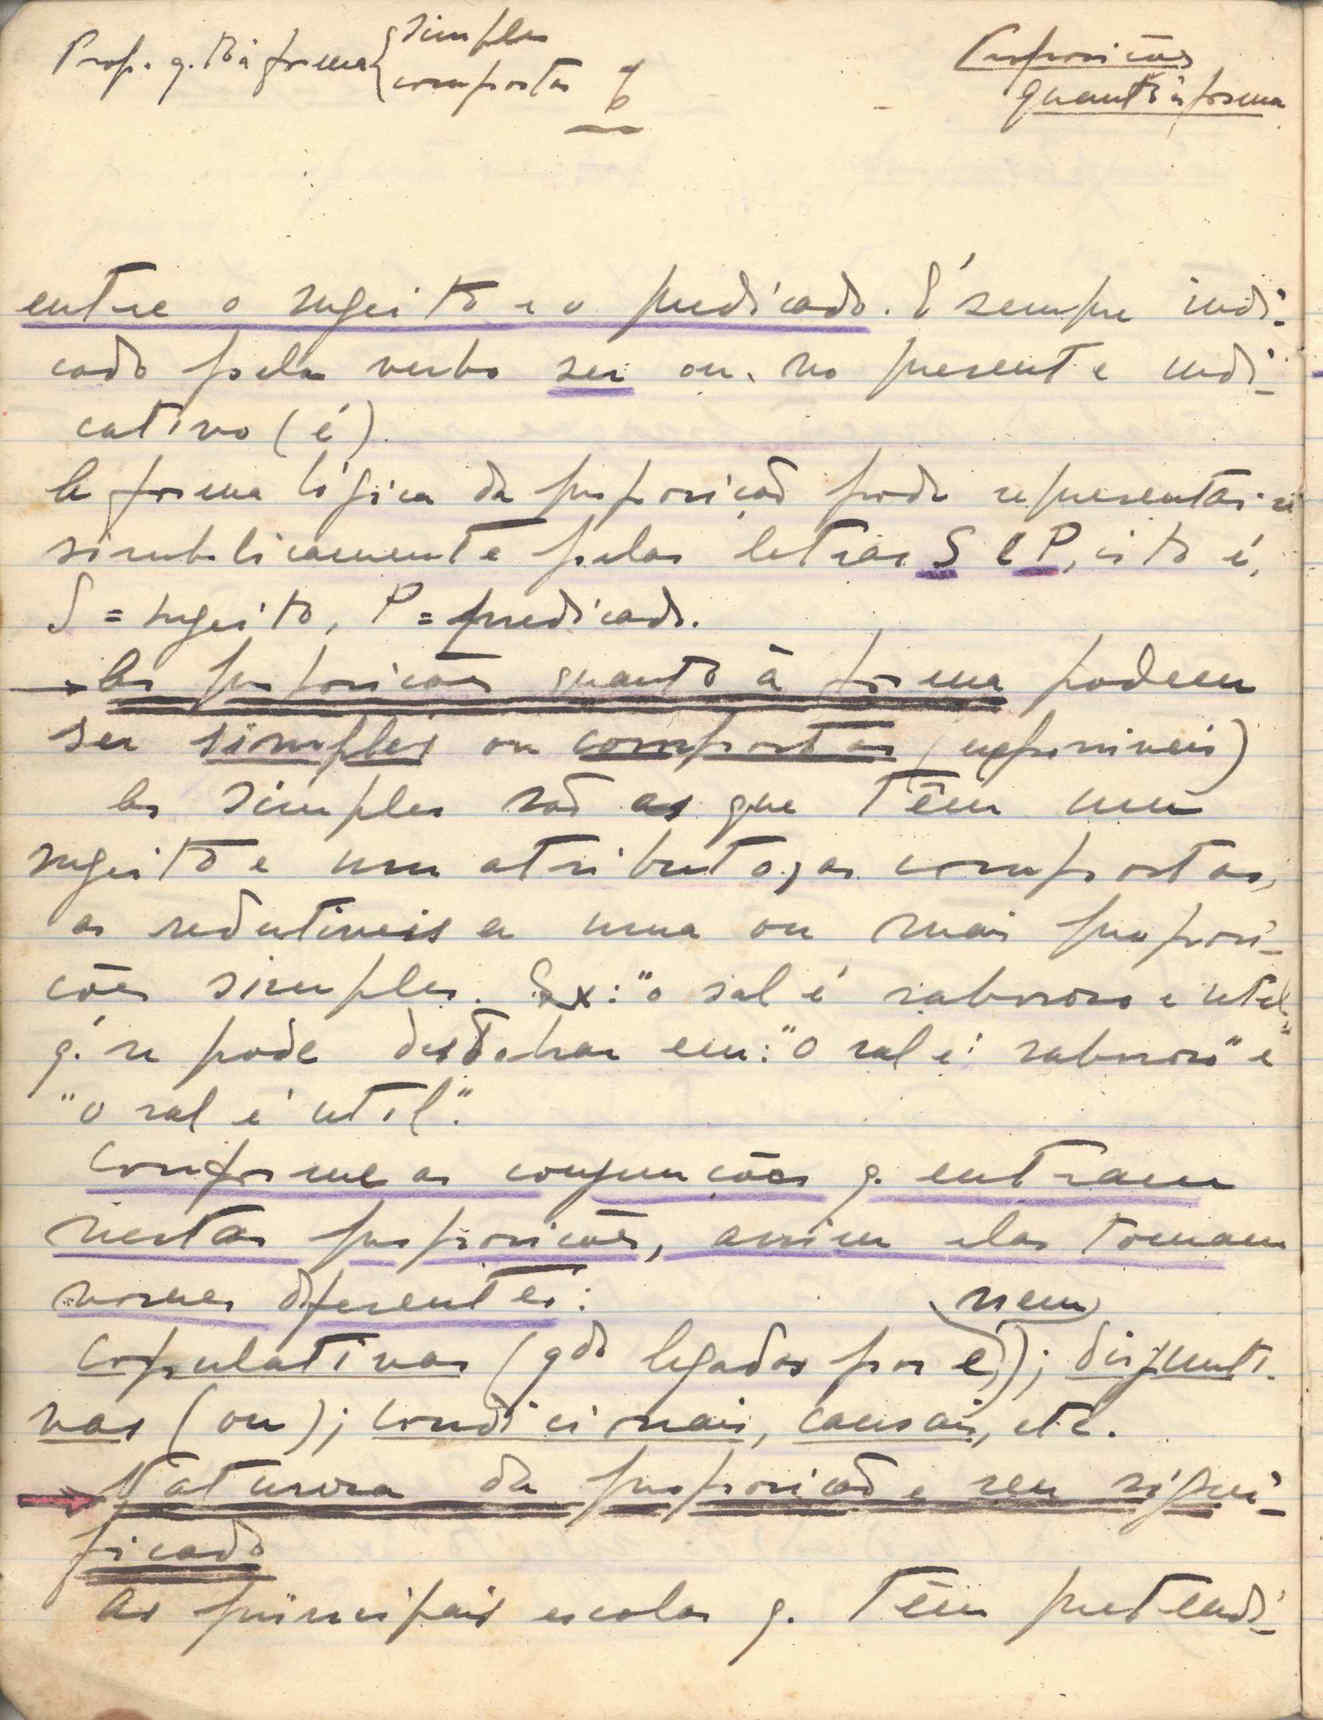 Prop. q.to à forma { simples
compostas
6
Proposições
quanto à forma
entre o sujeito e o predicado. É sempre indi-
cado pelo verbo ser ou no presente indi-
cativo (é).
A forma lógica da proposição pode representar-se
simbolicamente pelas letras S e P, isto é,
S = sujeito, P = predicado.
→ As proposições quanto à forma podem
ser simples ou compostas (exponiveis)
As simples são as que têm um
sujeito e um atributo; as compostas,
as redutiveis a uma ou mais proposi-
ções simples. Ex: "o sal é saboroso e util",
q. se pode desdobrar em: "O sal é saboroso" e
"o sal é util".
Conforme as conjunções q. entram
nestas proposições, assim elas tomam
nomes diferentes:
nem
Copulativas (qdo ligadas por e); disjunti-
vas (ou); condicionais, causais, etc.
→ Natureza da proposição e seu signi-
ficado
As principais escolas q. têm pretendi-